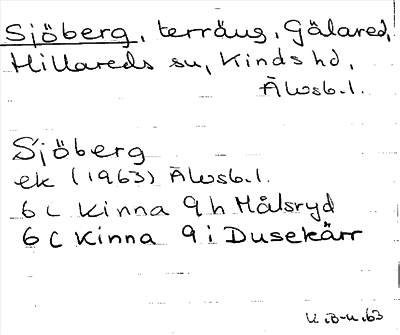 Sjöberg, terräng, Gälared,
Hillareds sn, Kinds hd,
Älvsb. l.
Sjöberg
ek (1963) Älvsb. l.
6 C Kinna 9 h Målsryd
6 C Kinna 9 i Dusekärr
U. B-n. 63